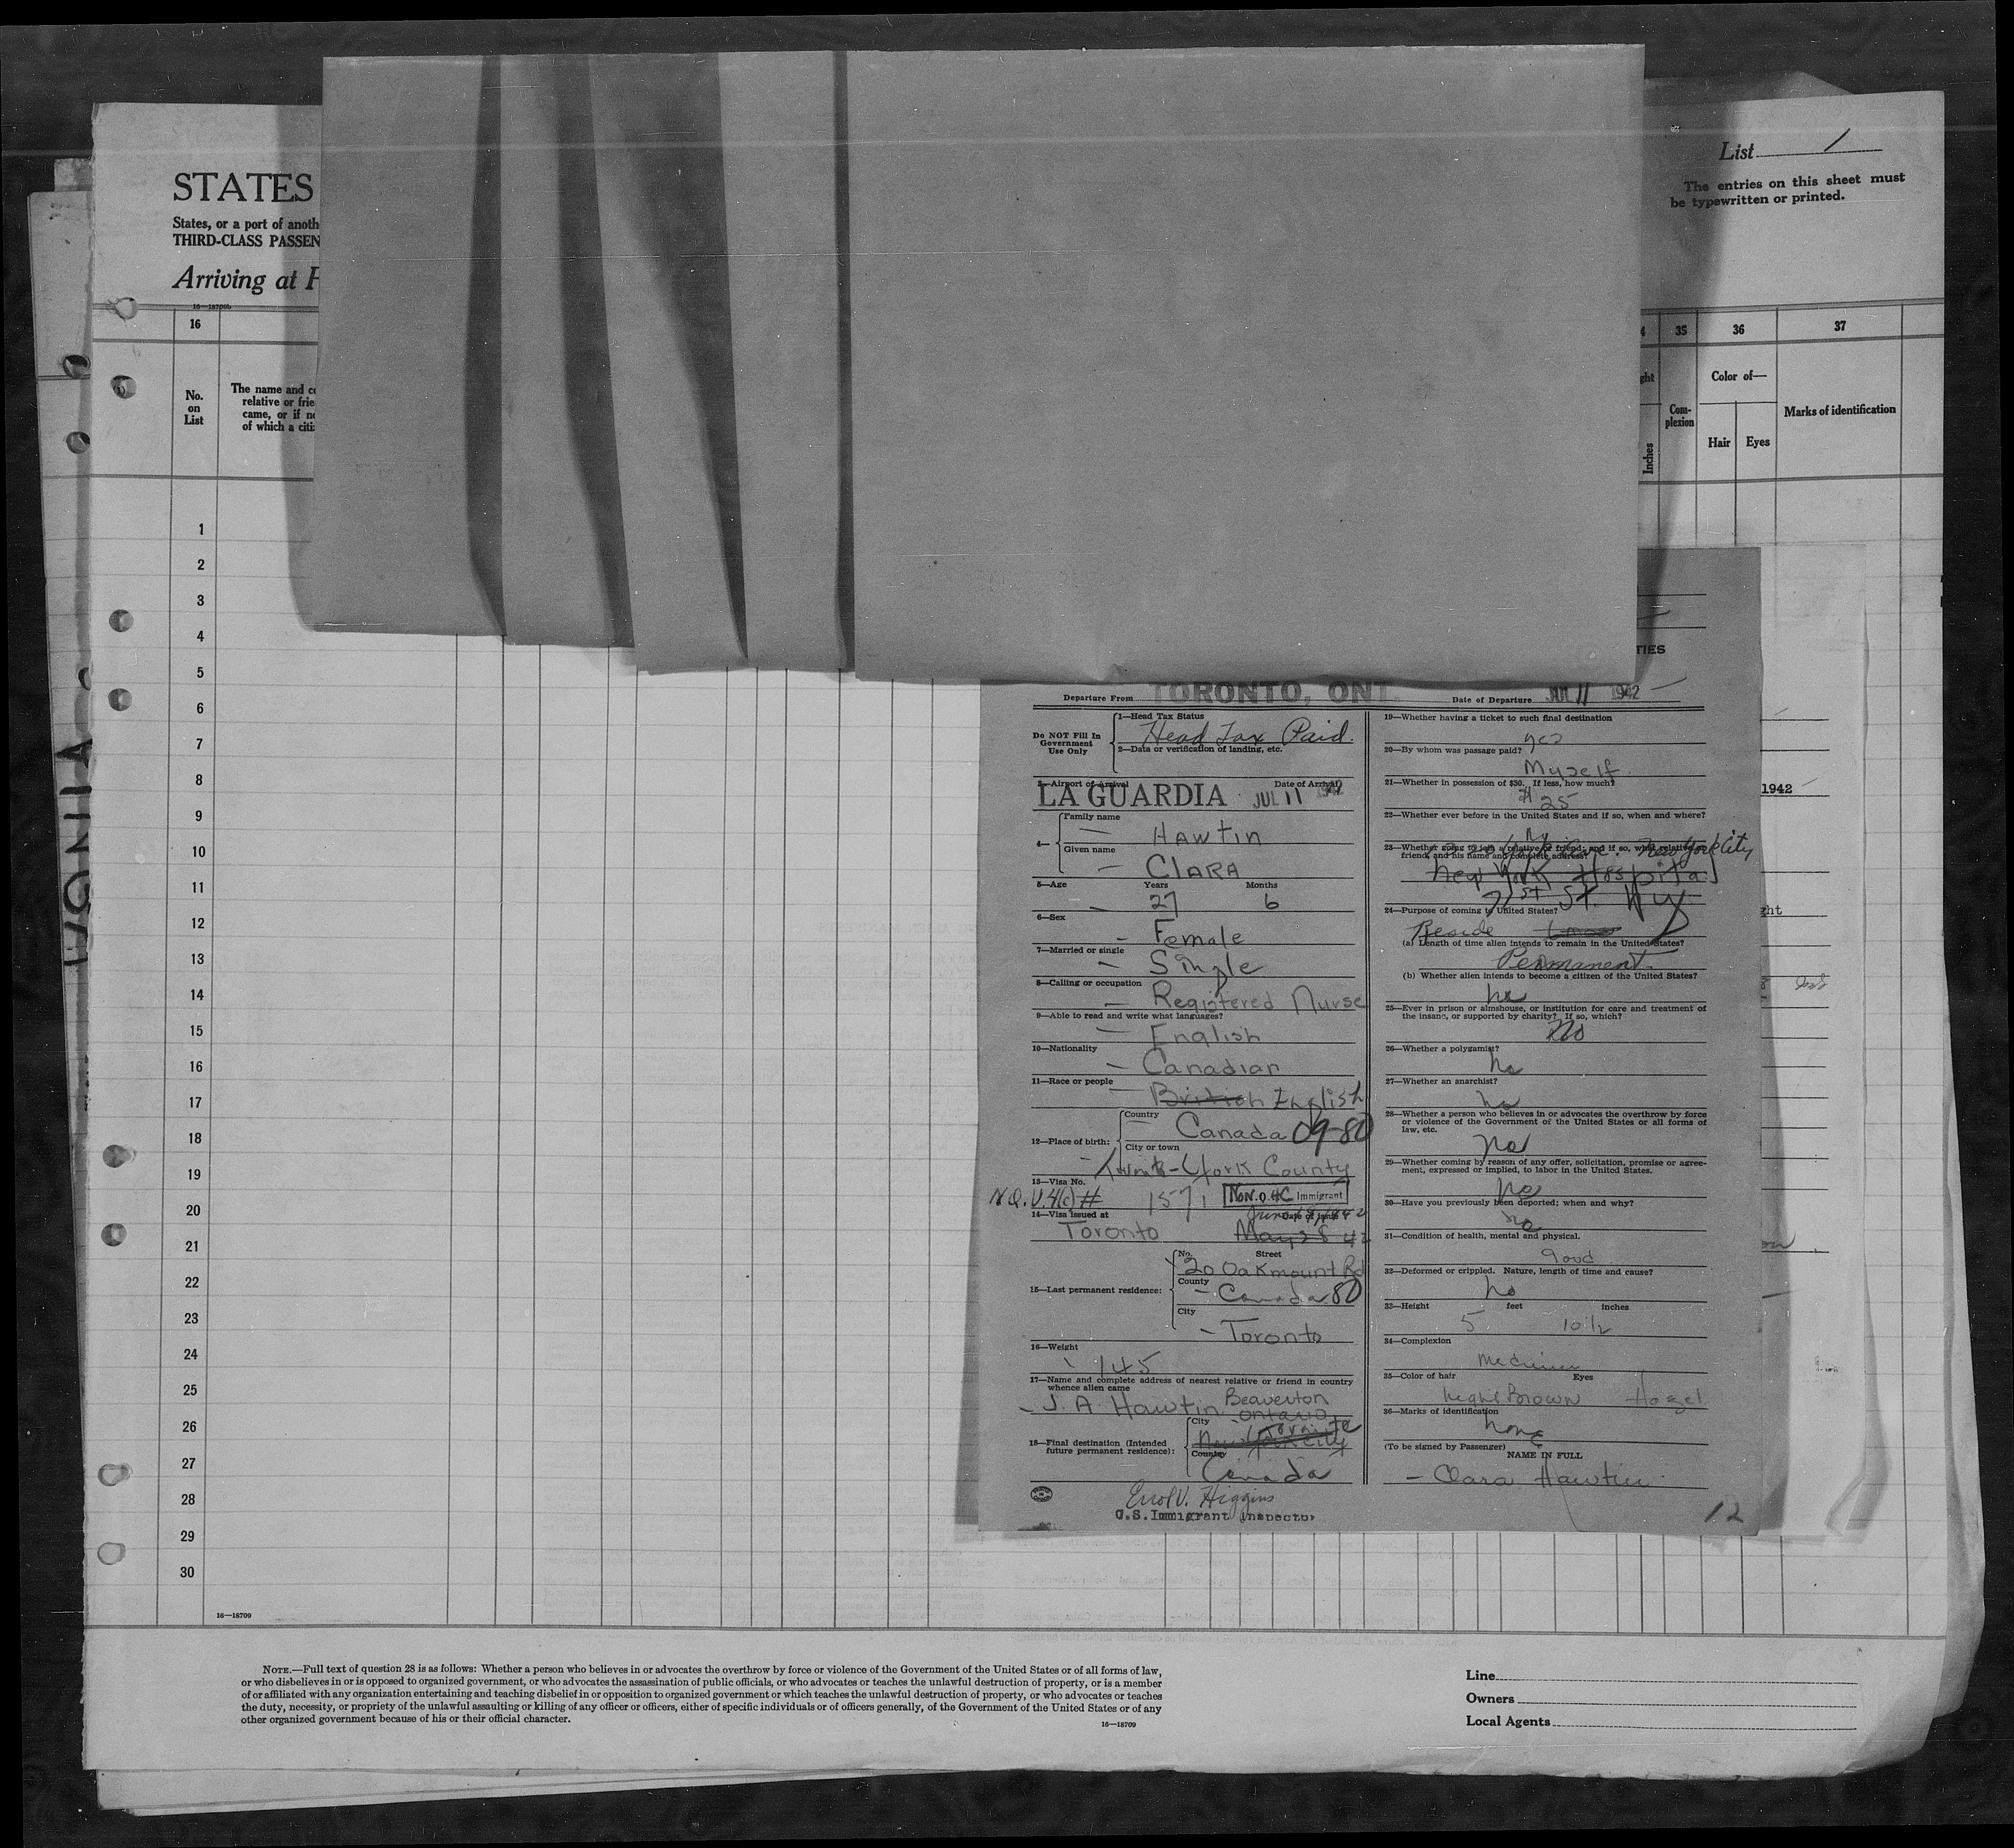 List 1
The entries on this sheet must
be typewritten or printed.
STATES
States, or a port of anoth
THIRD-CLASS PASSEN
Arriving at
16—18709b
16
35
36
37
No.
on
List
The name and c
relative or frie
came, or if n
of which a citi
Com-
plexion
Color of—
Hair
Eyes
Marks of identification
Inches
1
2
3
4
5
6
7
8
9
10
11
12
13
14
15
16
17
18
19
20
21
22
23
24
25
26
27
28
29
30
16—18709
TIES
1942
Departure From TORONTO, ONT
Date of Departure JUL 11 1942
Do NOT Fill In
Government
Use Only
1—Head Tax Status
Head Tax Paid.
2—Data or verification of landing, etc.
3—Airport of Arrival
Date of Arrival
LA GUARDIA JUL 11 1942
4—
Family name
— HAWTIN
Given name
— CLARA
5—Age
Years
Months
— 27 6
6—Sex
– Female
7—Married or single
— Single
8—Calling or occupation
— Registered Nurse
9—Able to read and write what languages?
— English
10—Nationality
— Canadian
11—Race or people
— British English
12—Place of birth:
Country
Canada 09-80
City or town
York County
13—Visa No.
N.Q.V.4(c) # 1571 Non. Q. 4C Immigrant
14—Visa issued at
Date of issue
Toronto May 28 42
15—Last permanent residence:
No.
Street
20 Oakmount Rd
County
– Canada 80
City
– Toronto
16—Weight
145
17—Name and complete address of nearest relative or friend in country
whence alien came
– J. A. Hawtin Beaverton
Ontario
18—Final destination (Intended
future permanent residence):
City
Toronto
New York City
Country
Canada
Errol V. Higgins
U.S. Immigrant Inspector
19—Whether having a ticket to such final destination
yes
20—By whom was passage paid?
Myself
21—Whether in possession of $50. If less, how much?
$ 25
22—Whether ever before in the United States and if so, when and where?
23—Whether going to join a relative or friend; and if so, what relative or
friend, and his name and complete address?
New York City
New York Hospital
71st St. N.Y.
24—Purpose of coming to United States?
Reside
(a) Length of time alien intends to remain in the United States?
Permanent
(b) Whether alien intends to become a citizen of the United States?
no
25—Ever in prison or almshouse, or institution for care and treatment of
the insane, or supported by charity? If so, which?
No
26—Whether a polygamist?
no
27—Whether an anarchist?
no
28—Whether a person who believes in or advocates the overthrow by force
or violence of the Government of the United States or all forms of
law, etc.
no
29—Whether coming by reason of any offer, solicitation, promise or agree-
ment, expressed or implied, to labor in the United States.
no
30—Have you previously been deported; when and why?
no
31—Condition of health, mental and physical.
good
32—Deformed or crippled. Nature, length of time and cause?
no
33—Height
feet
inches
5 10 1/2
34—Complexion
medium
35—Color of hair
Eyes
Light Brown Hazel
36—Marks of identification
none
(To be signed by Passenger)
NAME IN FULL
– Clara Hawtin
12
NOTE.—Full text of question 28 is as follows: Whether a person who believes in or advocates the overthrow by force or violence of the Government of the United States or of all forms of law,
or who disbelieves in or is opposed to organized government, or who advocates the assassination of public officials, or who advocates or teaches the unlawful destruction of property, or is a member
of or affiliated with any organization entertaining and teaching disbelief in or opposition to organized government or which teaches the unlawful destruction of property, or who advocates or teaches
the duty, necessity, or propriety of the unlawful assaulting or killing of any officer or officers, either of specific individuals or of officers generally, of the Government of the United States or of any
other organized government because of his or their official character.
16—18709
Line
Owners
Local Agents